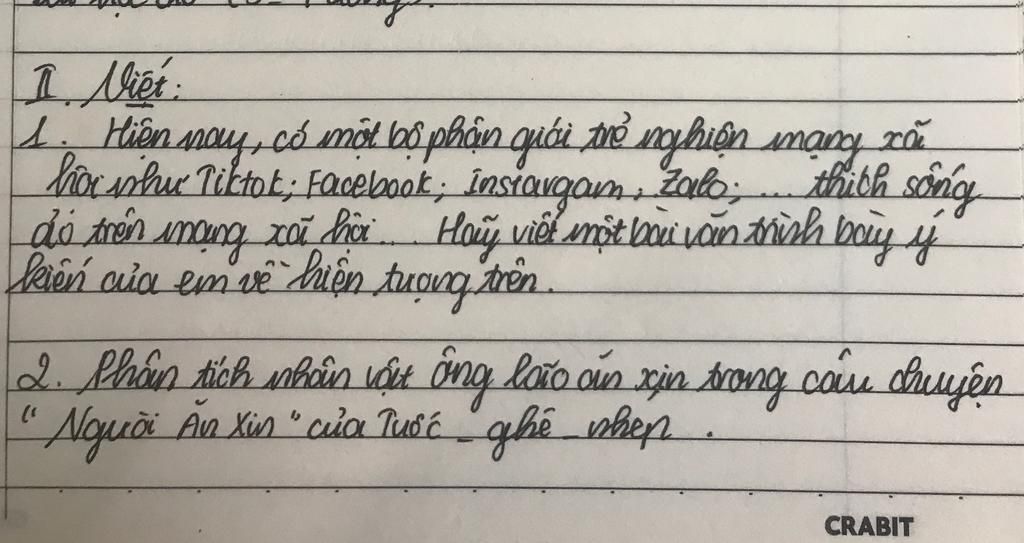 II. Viết:
1. Hiện nay, có một bộ phận giới trẻ nghiện mạng xã
hội như Tiktok; Facebook; instargam, Zalo; ... thích sống
ảo trên mạng xã hội... Hãy viết một bài văn trình bày ý
kiến của em về hiện tượng trên.
2. Phân tích nhân vật ông lão ăn xin trong câu chuyện
"Người Ăn Xin" của Tuốc - ghê - nhep.
CRABIT